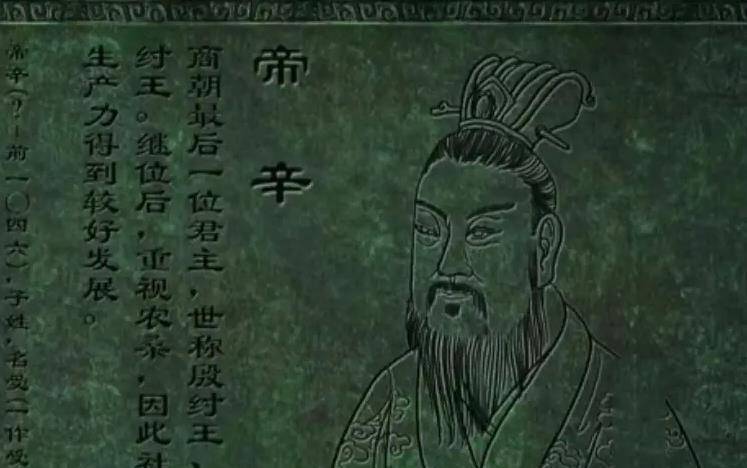 帝辛
商朝最后一位君主，世称殷纣王、
纣王。继位后，重视农桑，因此社
生产力得到较好发展。
帝辛（？－前一〇四六），子姓，名受（一作受